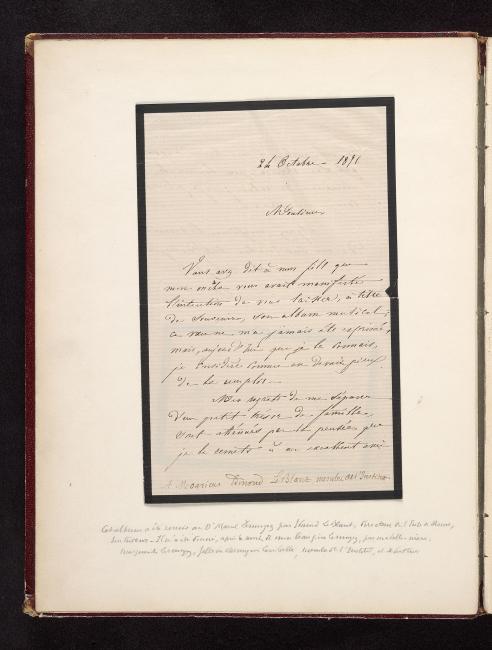 24 Octobre – 1891
Monsieur
Vous avez dit à mon fils que
mon mari vous avait manifesté
l'intention de vous laisser, à titre
de souvenir, son album musical;
ce vœu ne m'a jamais été exprimé,
mais, aujourd'hui que je le connais,
je considère comme un devoir pieux
de le remplir.
Mes regrets de me séparer
d'un petit trésor de famille,
sont atténués par la pensée que
je le remets à un excellent ami
A Monsieur Edmond Le Blant membre de l'Institut
Cet album a été remis au Dr Marcel par Edmond Le Blant, Directeur de l'École de Rome,
son tuteur – Il m'a été donné, après la mort de mon beau-père, par ma belle-mère,
Marguerite, fille de, membre de l'Institut, et